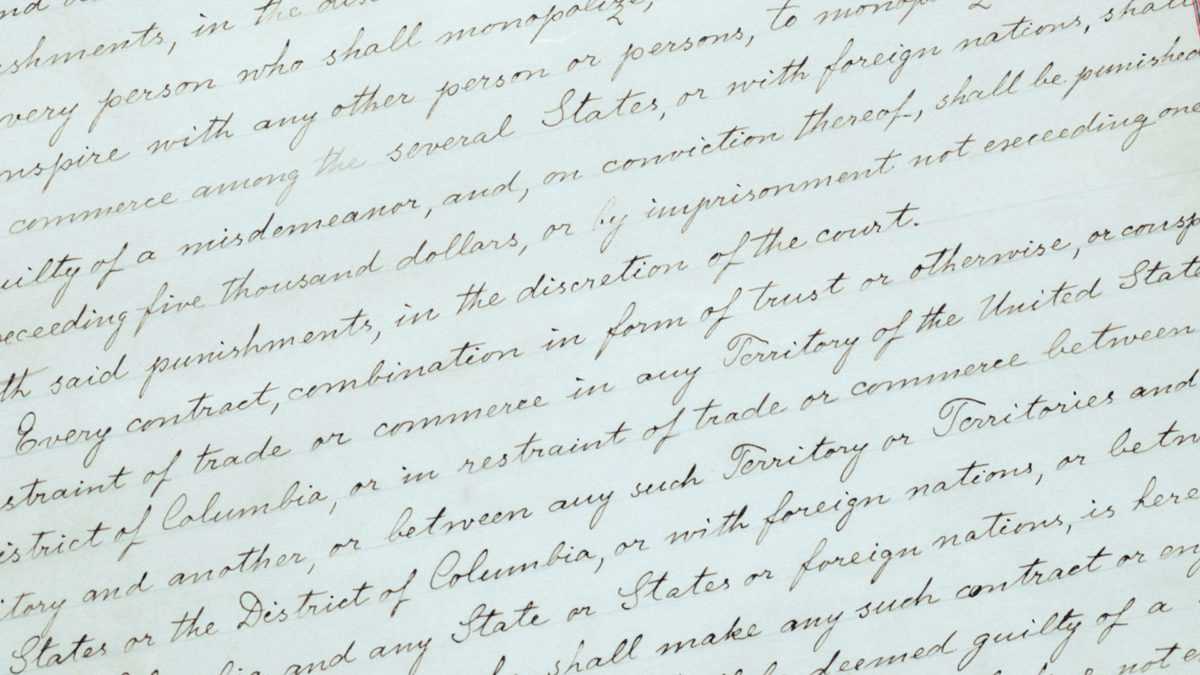 shments, in the dis
very person who shall monopolize,
nspire with any other person or persons, to monop
commerce among the several States, or with foreign nations, shall
uilty of a misdemeanor, and, on conviction thereof, shall be punished
xceeding five thousand dollars, or by imprisonment not exceeding one
th said punishments, in the discretion of the court.
Every contract, combination in form of trust or otherwise, or consp
straint of trade or commerce in any Territory of the United Stat
istrict of Columbia, or in restraint of trade or commerce between
itory and another, or between any such Territory or Territories and
States or the District of Columbia, or with foreign nations, or betw
bia and any State or States or foreign nations, is here
shall make any such contract or en
deemed guilty of a
not e